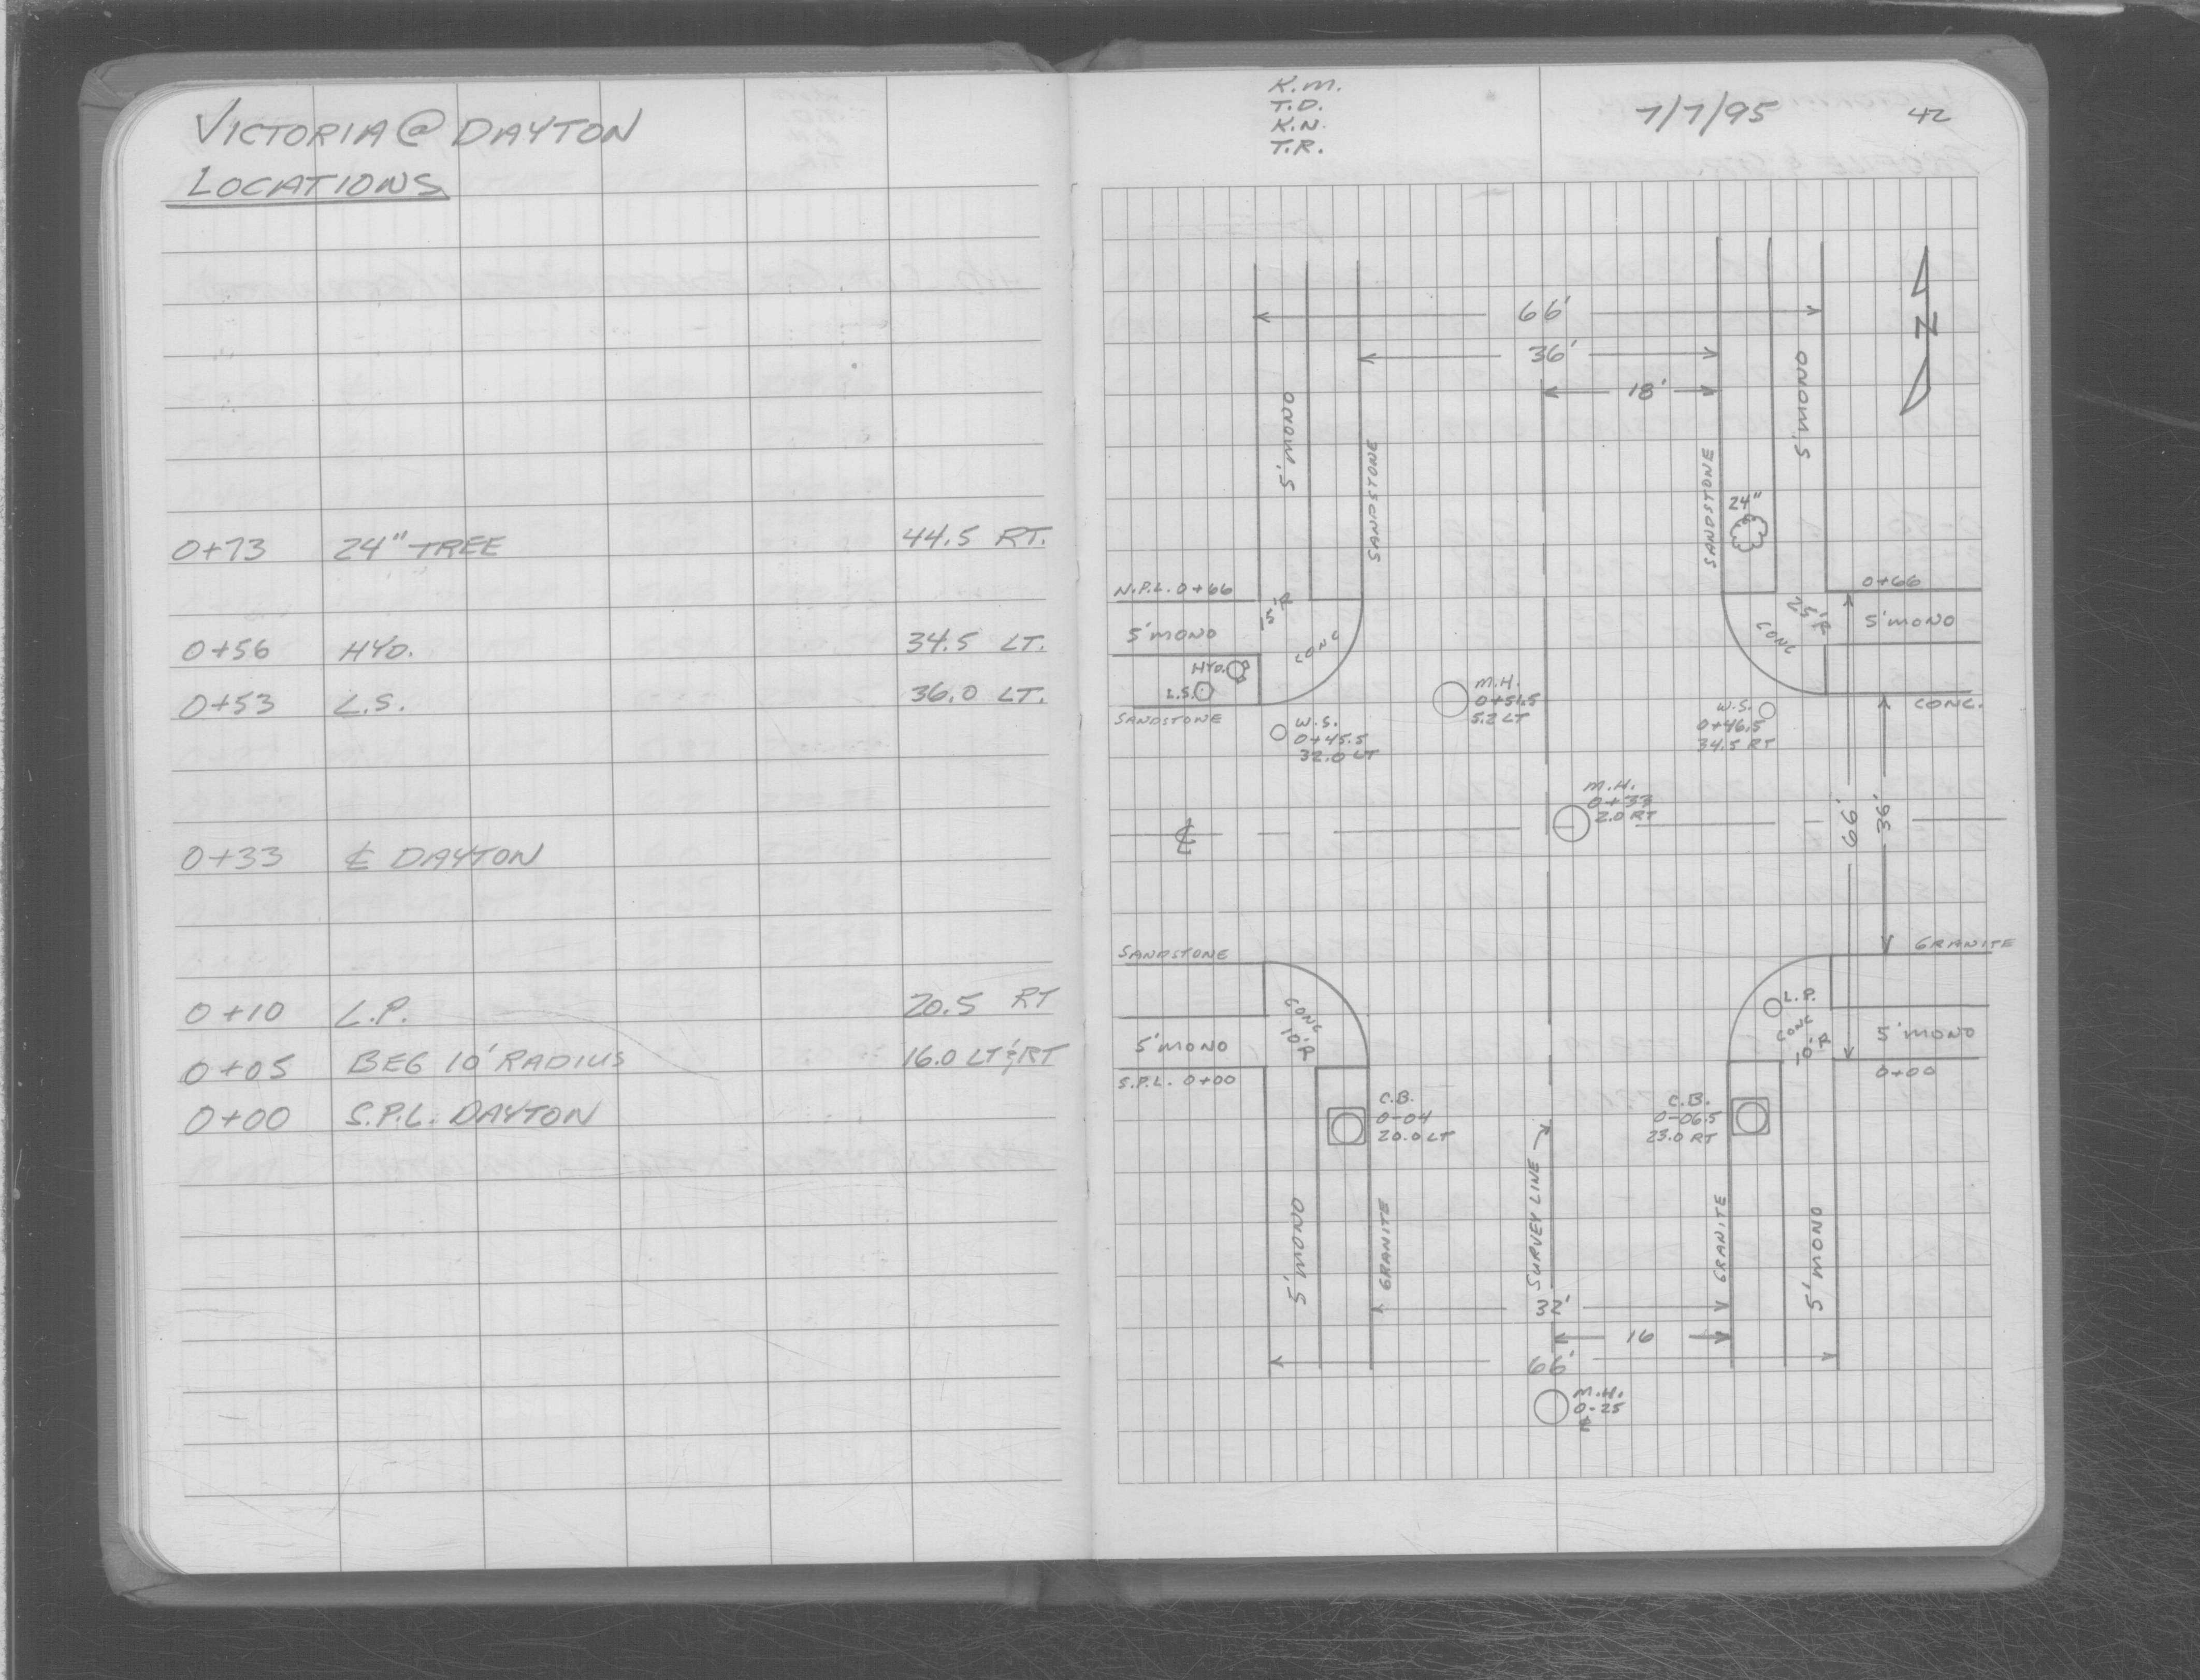 VICTORIA @ DAYTON
LOCATIONS
0+73 24" TREE 44.5 RT.
0+56 HYD. 34.5 LT.
0+53 L.S. 36.0 LT.
0+33 ℄ DAYTON
0+10 L.P. 20.5 RT
0+05 BEG 10' RADIUS 16.0 LT & RT
0+00 S.P.L. DAYTON
K.M.
T.D.
K.N.
T.R.
7/7/95 42
66'
36'
18'
N
5' MONO
SANDSTONE
SANDSTONE
5' MONO
24"
N.P.L. 0+66
15'R
0+66
5' MONO
CONC
CONC
5' MONO
HYD.
L.S.
SANDSTONE
W.S.
0+45.5
32.0 LT
M.H.
0+51.5
5.2 LT
W.S.
0+46.5
34.5 RT
CONC.
M.H.
0+33
2.0 RT
℄
66'
36'
SANDSTONE
GRANITE
CONC
10'R
L.P.
CONC
10'R
5' MONO
5' MONO
S.P.L. 0+00
0+00
C.B.
0-04
20.0 LT
C.B.
0-06.5
23.0 RT
5' MONO
GRANITE
SURVEY LINE
GRANITE
5' MONO
32'
16
66'
M.H.
0-25
℄